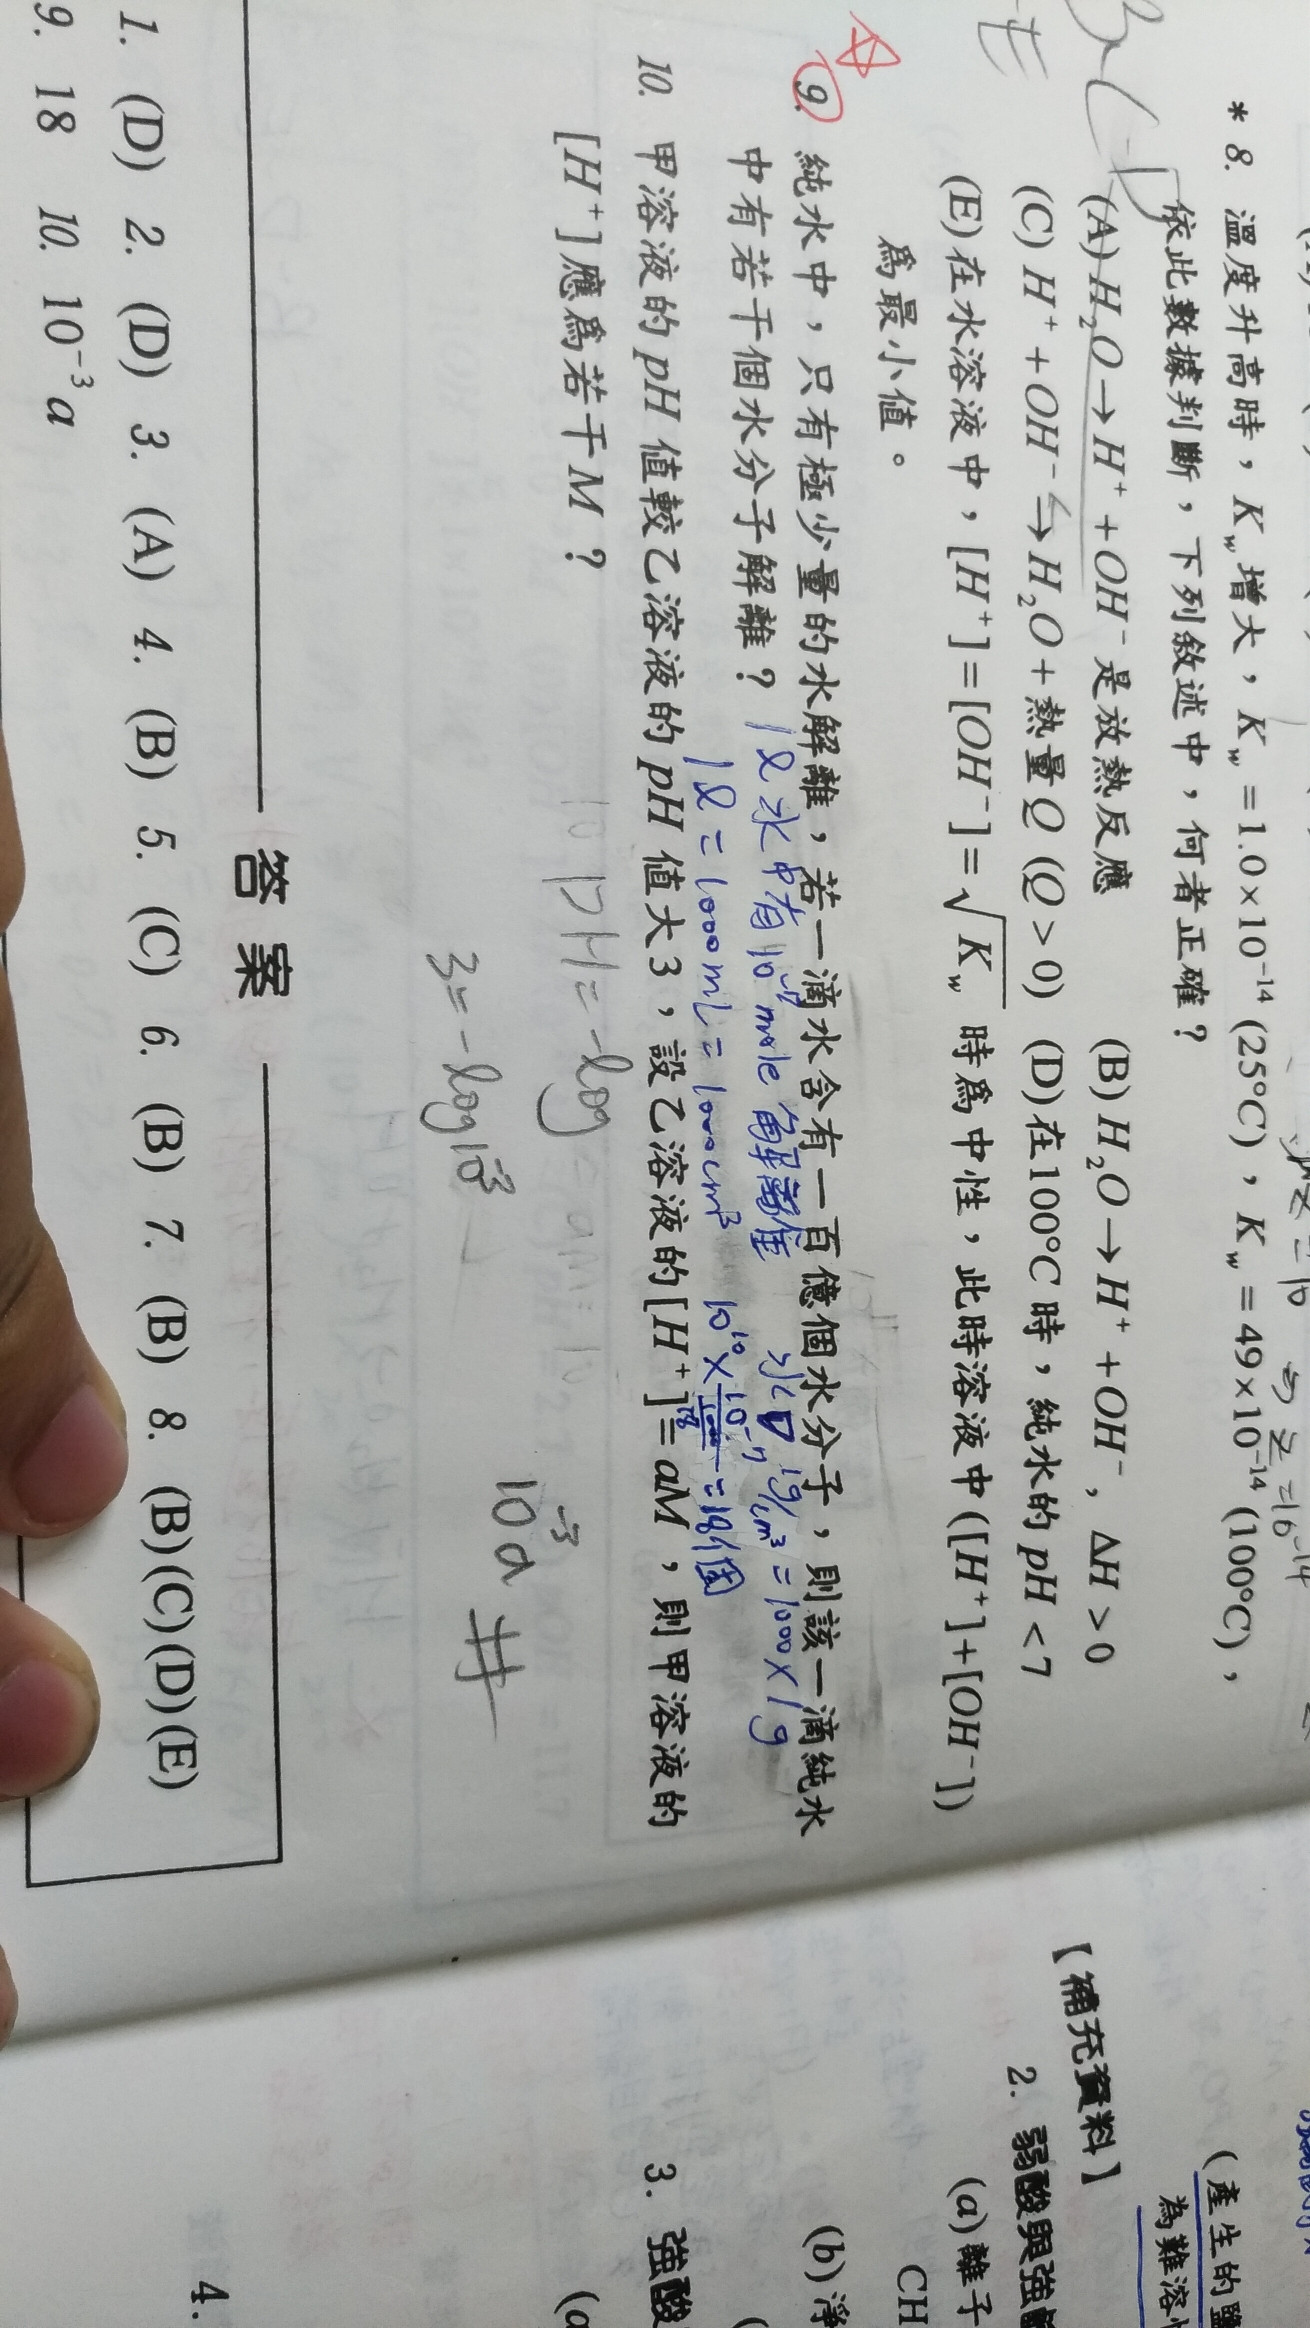 * 8. 溫度升高時，K_w增大，K_w = 1.0×10⁻¹⁴ (25°C)，K_w = 49×10⁻¹⁴ (100°C)，
依此數據判斷，下列敘述中，何者正確？
(A) H₂O→H⁺+OH⁻是放熱反應 (B) H₂O→H⁺+OH⁻，ΔH>0
(C) H⁺+OH⁻⇆H₂O+熱量Q (Q>0) (D) 在100°C時，純水的pH<7
(E) 在水溶液中，[H⁺]=[OH⁻]=√K_w 時為中性，此時溶液中([H⁺]+[OH⁻])
為最小值。
9. 純水中，只有極少量的水解離，若一滴水含有一百億個水分子，則該一滴純水
中有若干個水分子解離？ 1ℓ水中有10⁻⁷ mole 解離 水D 1g/cm³ = 1000×1g
1ℓ = 1000mL = 1000cm³ 10¹⁰×10⁻⁷/(1000/18) = 18個
10. 甲溶液的pH值較乙溶液的pH值大3，設乙溶液的[H⁺]=aM，則甲溶液的
[H⁺]應為若干M？
PH = -log
3 = -log10⁻³
10⁻³a #
答案
1. (D) 2. (D) 3. (A) 4. (B) 5. (C) 6. (B) 7. (B) 8. (B)(C)(D)(E)
9. 18 10. 10⁻³a
(產生的鹽
為難溶
【補充資料】
2. 弱酸與強
(a) 離子
CH
(b) 淨
3. 強酸
4.